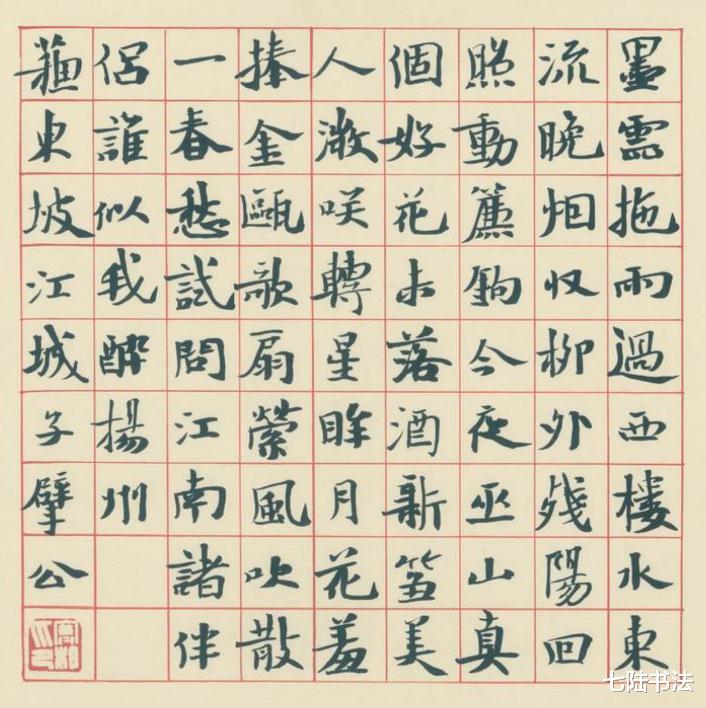 墨雲拖雨過西楼水東
流晚烟収柳外残陽回
照動簾鈎今夜巫山真
個好花未落酒新篘美
人微咲轉星眸月花羞
捧金甌歌扇縈風吹散
一春愁試問江南諸伴
侣誰似我酔揚州
蘓東坡江城子擘公
七陆书法